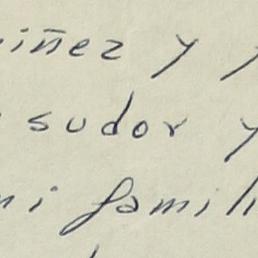 iñez y y
sudor y
mi famili